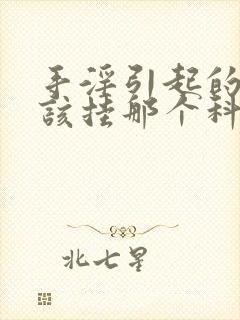 手淫引起的
該挂那个科
北七星